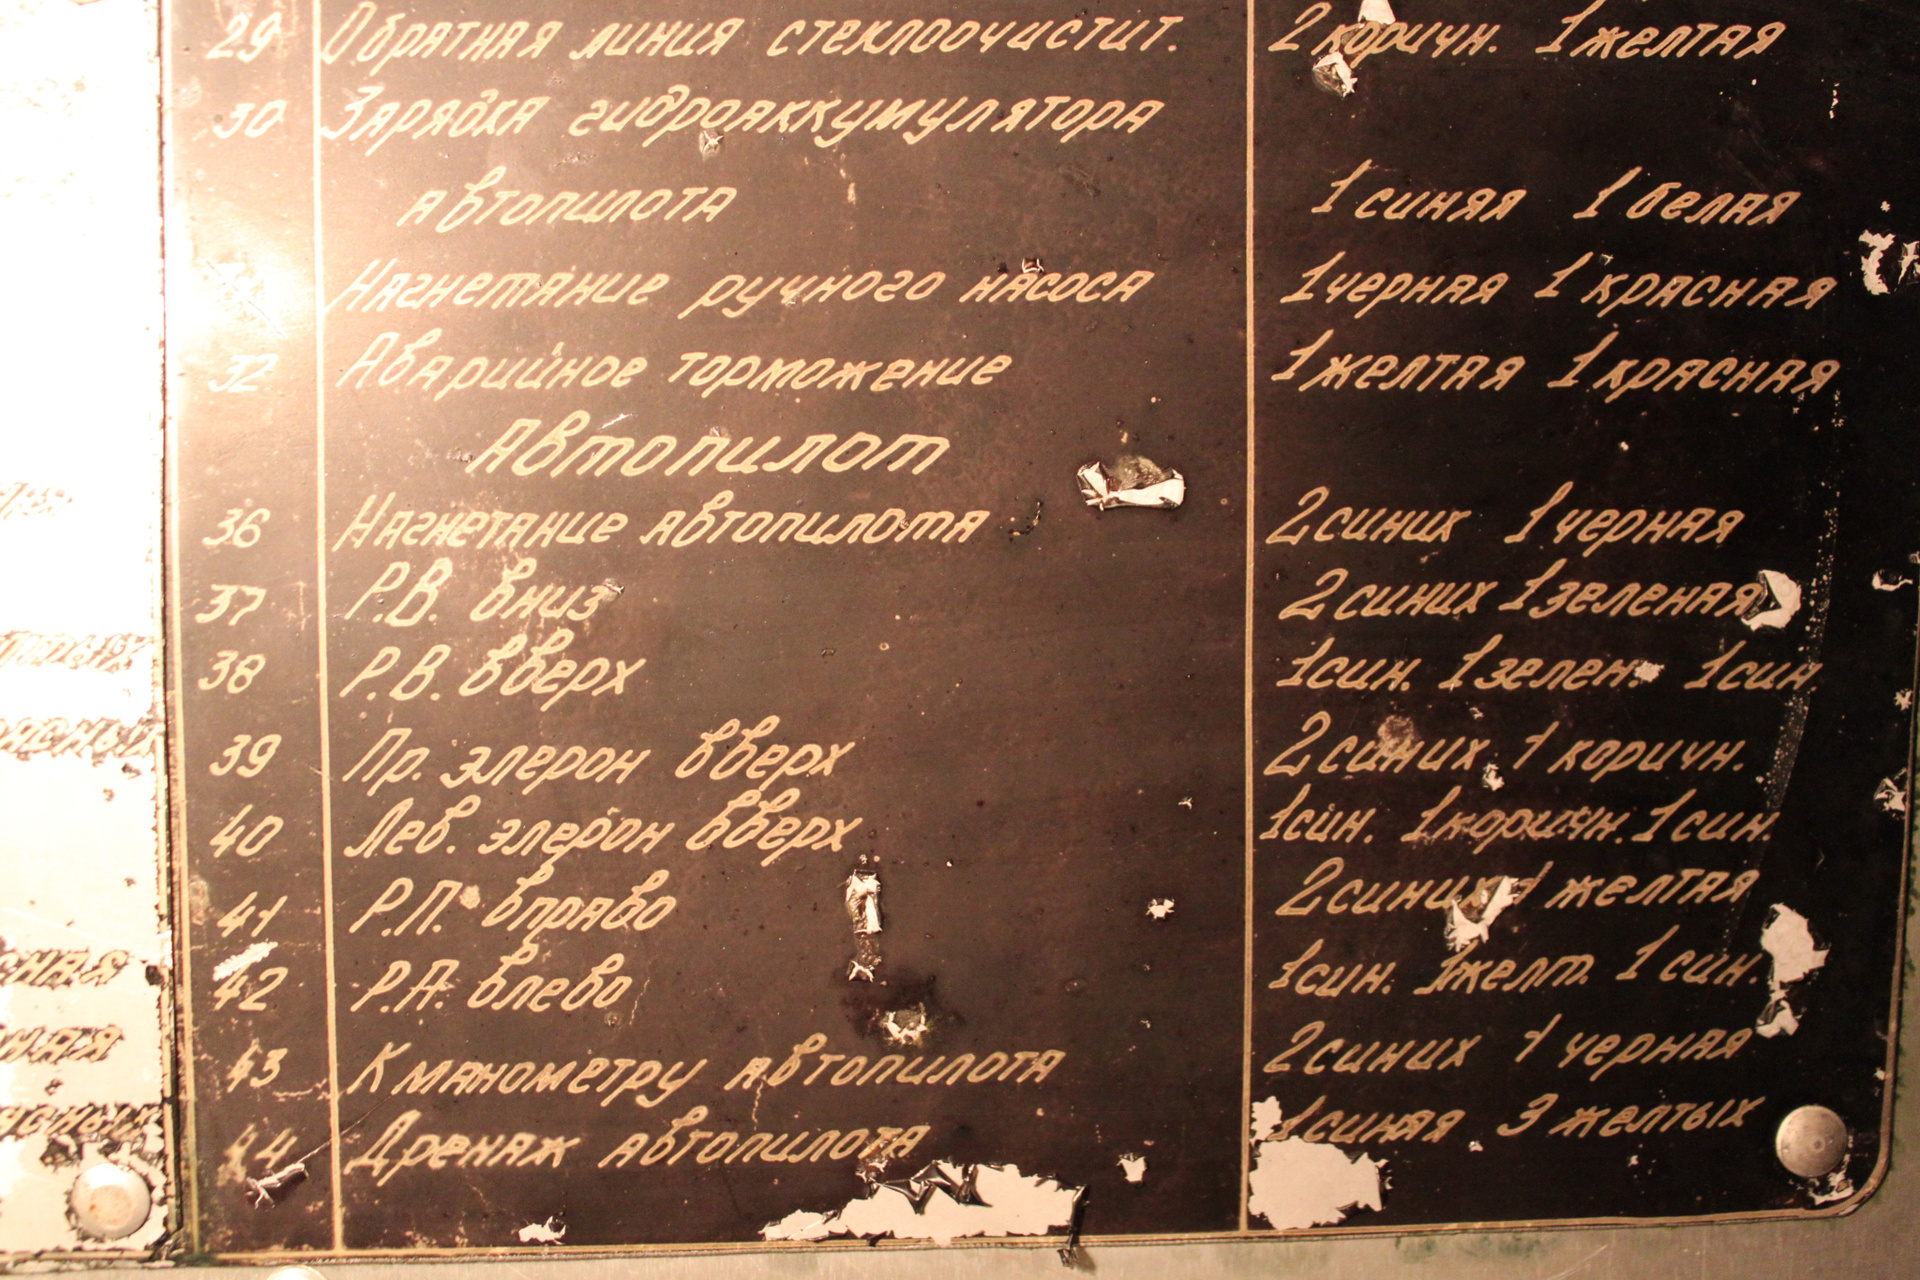 29 Обратная линия стеклоочистит. 2 коричн. 1 желтая
30 Зарядка гидроаккумулятора
автопилота 1 синяя 1 белая
Нагнетание ручного насоса 1 черная 1 красная
32 Аварийное торможение 1 желтая 1 красная
Автопилот
36 Нагнетание автопилота 2 синих 1 черная
37 Р.В. вниз 2 синих 1 зеленая
38 Р.В. вверх 1 син. 1 зелен. 1 син.
39 Пр. элерон вверх 2 синих 1 коричн.
40 Лев. элерон вверх 1 син. 1 коричн. 1 син.
41 Р.П. вправо 2 синих 1 желтая
42 Р.П. влево 1 син. 1 желт. 1 син.
43 К манометру автопилота 2 синих 1 черная
44 Дренаж автопилота 1 синяя 3 желтых